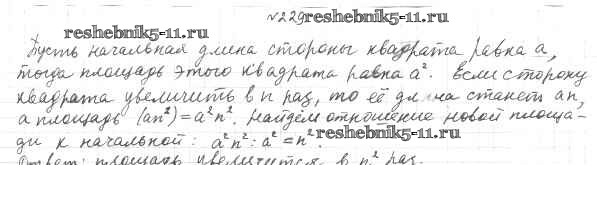 №229reshebnik5-11.ru
reshebnik5-11.ru
Пусть начальная длина стороны квадрата равна a,
тогда площадь этого квадрата равна a². Если сторону
квадрата увеличить в n раз, то её длина станет an,
а площадь (an²)=a²n². Найдём отношение новой площа-
ди к начальной: a²n²:a²=n².
reshebnik5-11.ru
Ответ: площадь увеличится в n² раз.